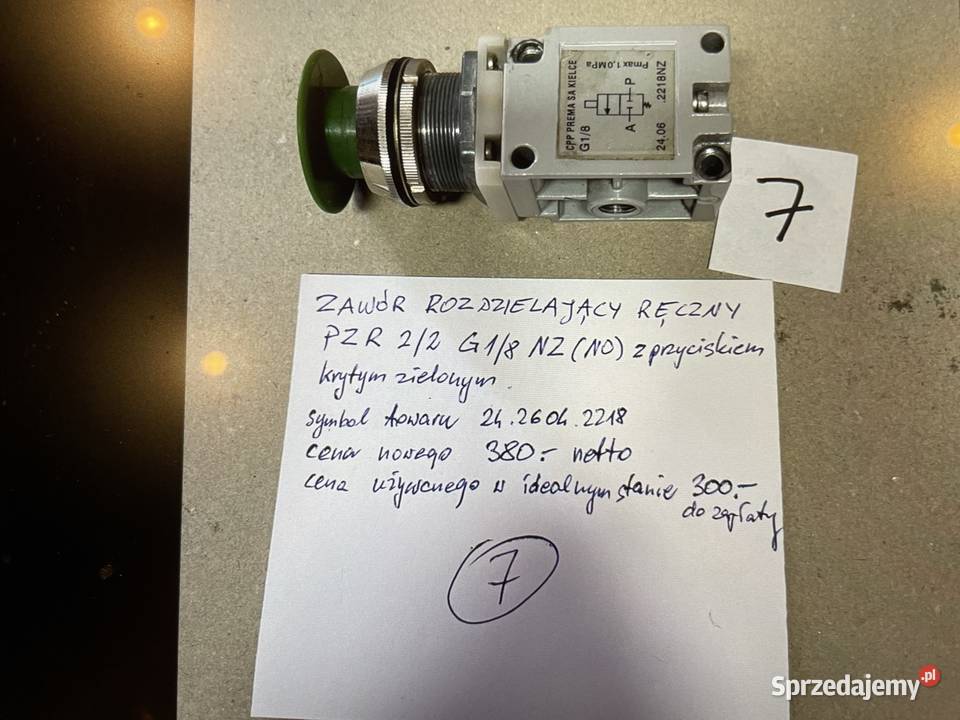 CPP PREMA SA KIELCE
G1/8
Pmax 1,0MPa
A P
24.06 .2218NZ
7
ZAWÓR ROZDZIELAJĄCY RĘCZNY
PZR 2/2 G1/8 NZ (NO) z przyciskiem
krytym zielonym.
symbol towaru 24.2604.2218
cena nowego 380.- netto
cena używanego w idealnym stanie 300.-
do zapłaty
7
Sprzedajemy.pl